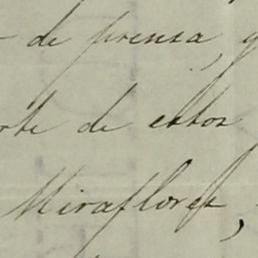 de prensa, y
rte de estos
Miraflores,